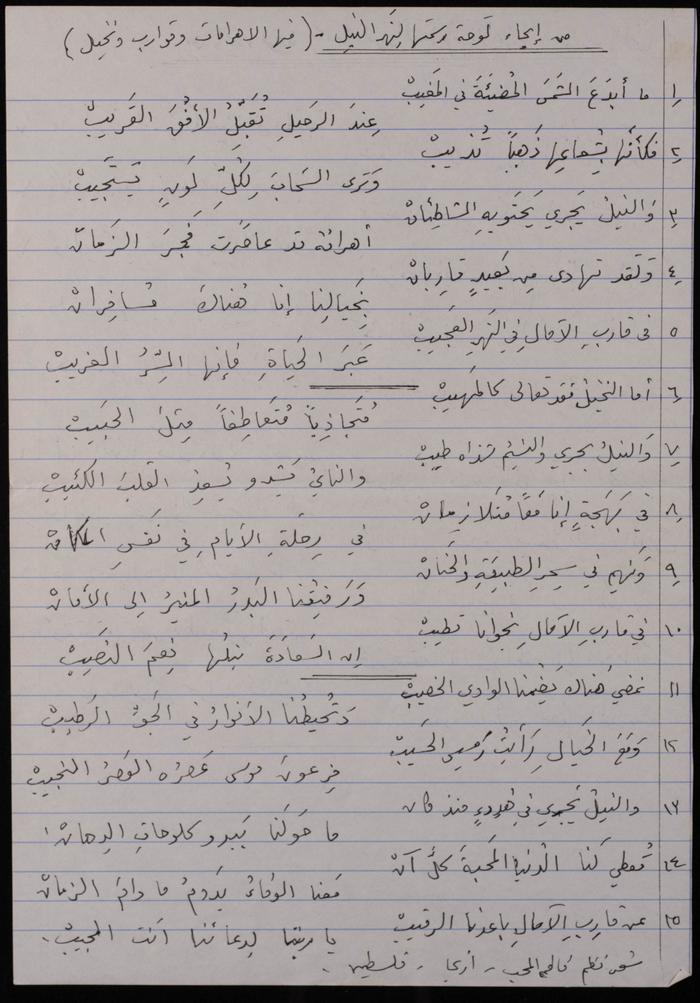 من إيحاء لوحة رسمتها لِنَهر النيل - (فيها الاهرامات وقوارب ونخيل)
١ ما أبدَعَ الشمسَ المُضيئَةَ في المَغيبْ
عِندَ الرحيلِ تُقَبِّلُ الأفُقَ القَريبْ
٢ فكأنَّها بِشُعاعِها ذَهَباً تُذيبْ
وَترى السَحابَ لِكُلِّ لَونٍ يَستَجيبْ
٣ وَالنيلُ يَجري يَحتَويهِ الشاطِئانْ
أهرامُهُ قد عاصَرت فَجرَ الزَمانْ
٤ وَلَقد تهادى مِن بَعيدٍ قارِبانْ
بِخَيالِنا إنا هُناكَ مُسافِرانْ
٥ في قاربِ الآمالِ في النَهرِ العَجيبْ
عَبرَ الحَياةِ فإنها السِّرُ الغريبْ
٦ أما النَخيلُ فقد تعالى كالمَهيبْ
مُتَجاذِباً مُتَعاطِفاً مِثلَ الحَبيبْ
٧ وَالنيلُ يجري والنَسيمُ شذاه طيبْ
والنايُ يَشدو يُسعِدُ القلبَ الكئيبْ
٨ في بَهجَةٍ إنا مَعاً مُتَلازِمانْ
في رِحلَةِ الأيامِ في نَفسِ المكانْ
٩ وَنَهيمُ في سِحرِ الطَبيعَةِ والحَنانْ
وَرَفيقُنا البَدرُ المنيرُ الى الأمانْ
١٠ في قاربِ الآمالِ نجوانا تَطيبْ
إن السَعادَةَ نيلُها نِعمَ النَصيبْ
١١ نمضي هُناكَ يَضُمُنا الوادي الخَصيبْ
وَتُحيطُنا الأنوارُ في الجَوِّ الرَطيبْ
١٢ وَمَعَ الخَيالِ رَأيتُ رَمسيسَ الحَسيبْ
فِرعونَ موسى عَصرُه العَصرُ النَجيبْ
١٣ والنيلُ يَجري في هُدوءٍ منذ كانْ
ما حَولَنا يَبدو كلوحاتِ الدِهانْ
١٤ تُعطي لَنا الدُنيا المَحَبةَ كلَّ آنْ
مَعَنا الوَفاءُ يَدومُ ما دامَ الزمانْ
١٥ عن قاربِ الآمالِ باعِدْنا الرقيبْ
يا ربَّنا لِدعائنا أنتَ المجيبْ.
شعر ونظم - أريحا - فلسطين.